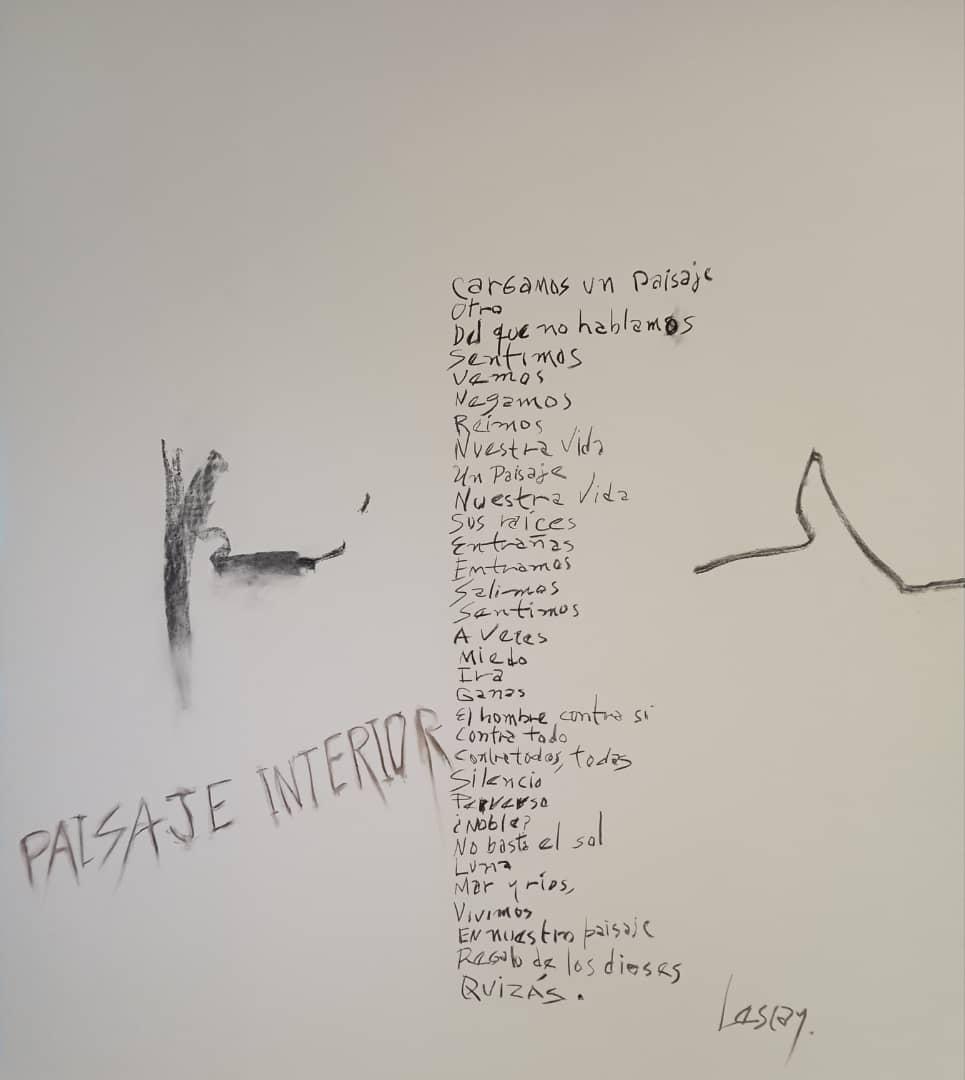 PAISAJE INTERIOR
Cargamos un paisaje
Otro
Del que no hablamos
Sentimos
Vemos
Negamos
Reímos
Nuestra Vida
Un Paisaje
Nuestra Vida
Sus raíces
Entrañas
Entramos
Salimos
Sentimos
A Veces
Miedo
Ira
Ganas
El hombre contra sí
Contra todo
Contra todos, todas
Silencio
Perverso
¿Noble?
No basta el sol
Luna
Mar y ríos,
Vivimos
EN nuestro paisaje
Regalo de los dioses
QUIZÁS.